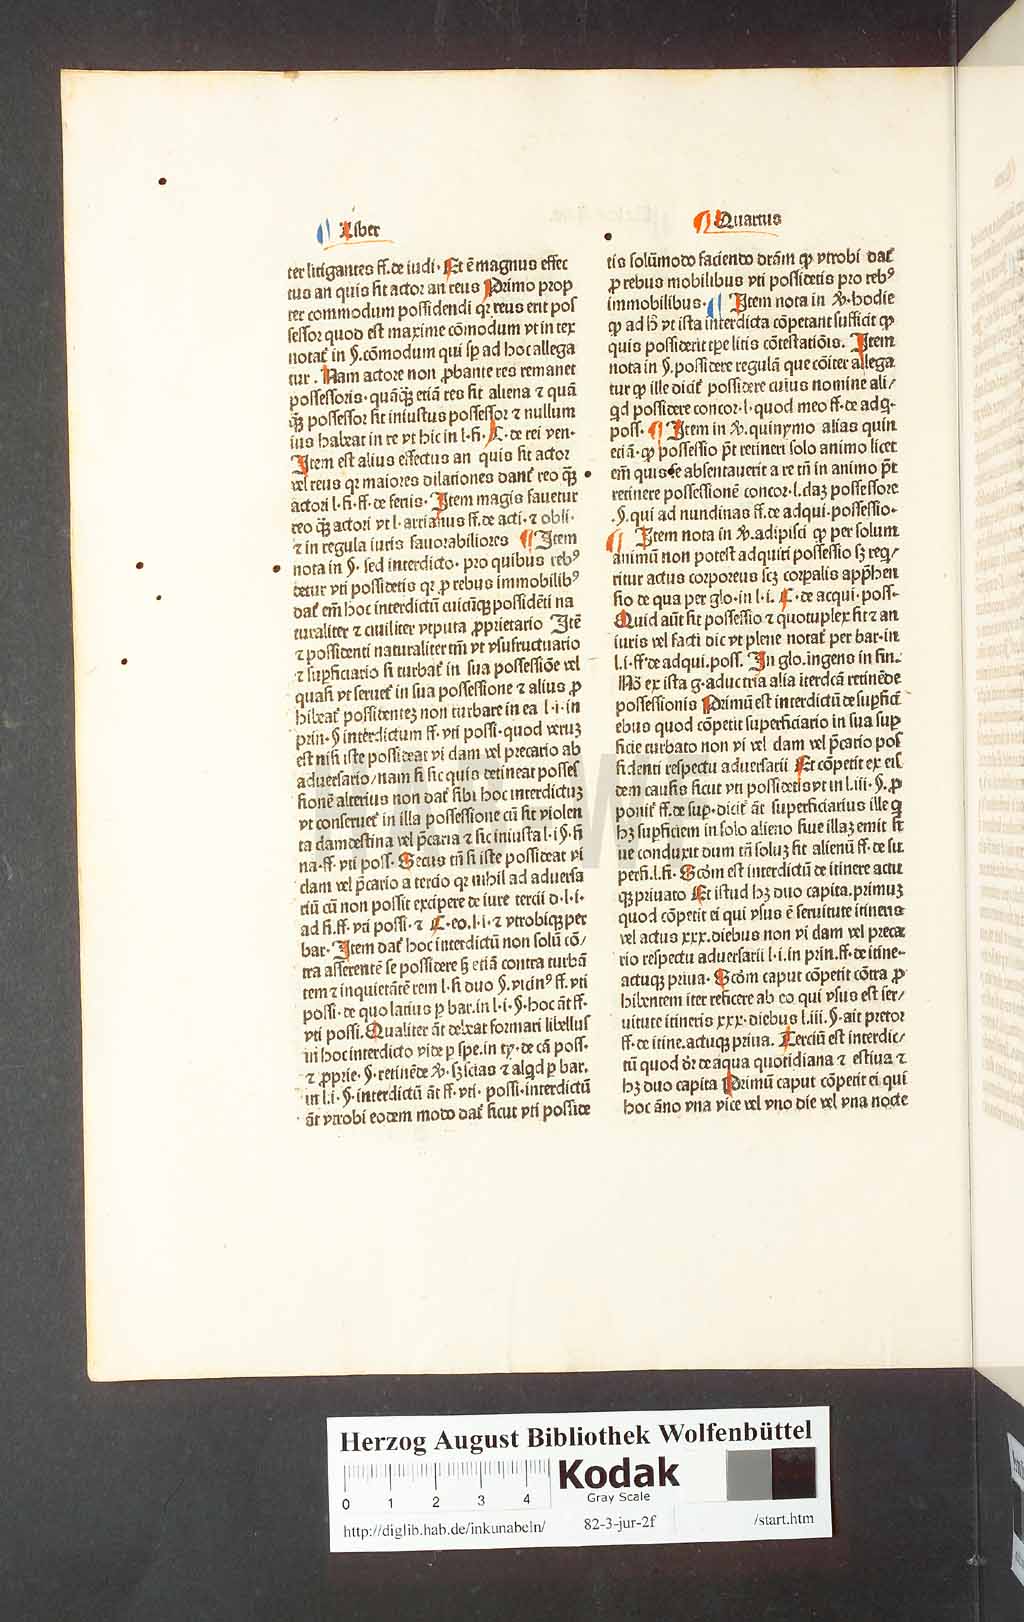 Liber
Quartus
ter litigantes ff. de iudi. Et ē magnus effec
tus an quis sit actor an reus Primo prop
ter commodum possidendi qr reus erit pos
sessor quod est maxime cōmodum vt in tex
notat̄ in §. cōmodum qui sp̄ ad hoc allega
tur. Nam actore non ꝓbante res remanet
possessoris. quāqꝫ etiā res sit aliena ⁊ quā
qꝫ possessor sit iniustus possessor ⁊ nullum
ius habeat in re vt hic in l. fi. C. de rei ven.
Item est alius effectus an quis sit actor
vel reus qr maiores dilationes dant̄ reo qꝫ
actori l. fi. ff. de feriis. Item magis fauetur
reo qꝫ actori vt l. arrianus ff. de acti. ⁊ obli.
⁊ in regula iuris fauorabiliores Item
nota in §. sed interdicto. pro quibus rebꝰ
detur vti possidetis qr ꝓ rebus immobilibꝰ
dat̄ em̄ hoc interdictū cuicūqꝫ possidēti na
turaliter ⁊ ciuiliter vtputa ꝓprietario Itē
⁊ possidenti naturaliter tm̄ vt vsufructuario
⁊ suꝑficiario si turbat̄ in sua possessiōe vel
quasi vt seruet̄ in sua possessione ⁊ alius ꝓ
hibeat̄ possidentez non turbare in ea l. i. in
prin. § interdictum ff. vti possi. quod veruz
est nisi iste possideat vi clam vel precario ab
aduersario/nam si sic quis detineat posses
sionē alterius non dat̄ sibi hoc interdictuz
vt conseruet̄ in illa possessione cū sit violen
ta clamdestina vel p̄caria ⁊ sic iniusta l. i § fi
na. ff. vti poss. Secus tn̄ si iste possideat vi
clam vel p̄cario a tercio qr nihil ad aduersa
riū cū non possit excipere de iure tercii d. l. i.
ad fi. ff. vti possi. ⁊ C. eo. l. i. ⁊ vtrobiqꝫ per
bar. Item dat̄ hoc interdictū non solū cō/
tra asserentē se possidere sꝫ etiā contra turbā
tem ⁊ inquietātē rem l. fi duo §. vicinꝰ ff. vti
possi. de quo latius ꝑ bar. in l. i. §. hoc āt ff.
vti possi. Qualiter āt debeat formari libellus
in hoc interdicto vide ꝑ spe. in
⁊ ꝓprie. §. retinēde . scias ⁊ ꝑ bar.
in l. i. §. interdictū āt ff. vti. possi. interdictū
āt vtrobi eodem modo dat̄ sicut vti posside
tis solūmodo faciendo drām qꝫ vtrobi dat̄
ꝓ rebus mobilibus vti possidetis pro rebꝰ
immobilibus. Item nota in . hodie
qꝫ ad vt ista interdicta cōpetant sufficit qꝫ
quis possiderit tꝑe litis cōtestatiōis. Item
nota in §. possidere regulā que cōiter allega
tur qꝫ ille dicit̄ possidere cuius nomine ali/
qd possidere concor. l. quod meo ff. de adq.
poss. Item in . quinymo alias quin
etiā. qꝫ possessio p̄t retineri solo animo licet
em̄ quis se absentauerit a re tn̄ in animo p̄t
retinere possessionē concor. l. possessore
. §. qui ad nundinas ff. de adqui. possessio.
Item nota in . adipisci qꝫ per solum
animū non potest adquiri possessio sꝫ req/
ritur actus corporeus scꝫ corpalis app̄hen
sio de qua per glo. in l. i. C. de acqui. poss.
Quid aūt sit possessio ⁊ quotuplex sit ⁊ an
iuris vel facti dic vt plene notat̄ per bar. in
l. i. ff de adqui. poss. In glo. ingens in fin.
ex ista g. aduc tria alia īterdcā retinēde
possessionis Primū est interdictū de suꝑfici
ebus quod cōpetit superficiario in sua suꝑ
ficie turbato non vi vel clam vel p̄cario pos
sidenti respectu aduersarii Et cōpetit ex eis
dem causis sicut vti possidetis vt in l. iii. §. ꝓ
ponit̄ ff. de suꝑ. dicit̄ āt superficiarius ille q̄
hꝫ suꝑficiem in solo alieno siue illaz emit si
ue conduxit dum tn̄ soluz sit alienū ff. de su
perfi. l. fi. Scdm est interdictū de itinere actu
qꝫ priuato Et istud hꝫ duo capita. primuz
quod cōpetit ei qui vsus ē seruitute itineris
vel actus xxx. diebus non vi clam vel preca
rio respectu aduersarii l. i. in prin. ff. de itine.
actuqꝫ priua. Scdm caput cōpetit cōtra ꝓ
hibentem iter reficere ab eo qui vsus est ser/
uitute itineris xxx. diebus l. iii. §. ait pretor
ff. de itine. actuqꝫ priua. Terciū est interdic/
tū quod dr̄ de aqua quotidiana ⁊ estiua ⁊
hꝫ duo capita Primū caput cōpetit ei qui
hoc āno vna vice vel vno die vel vna nocte
HAB-WF
Herzog August Bibliothek Wolfenbüttel
0 1 2 3 4
Kodak
Gray Scale
http://diglib.hab.de/inkunabeln/ 82-3-jur-2f /start.htm